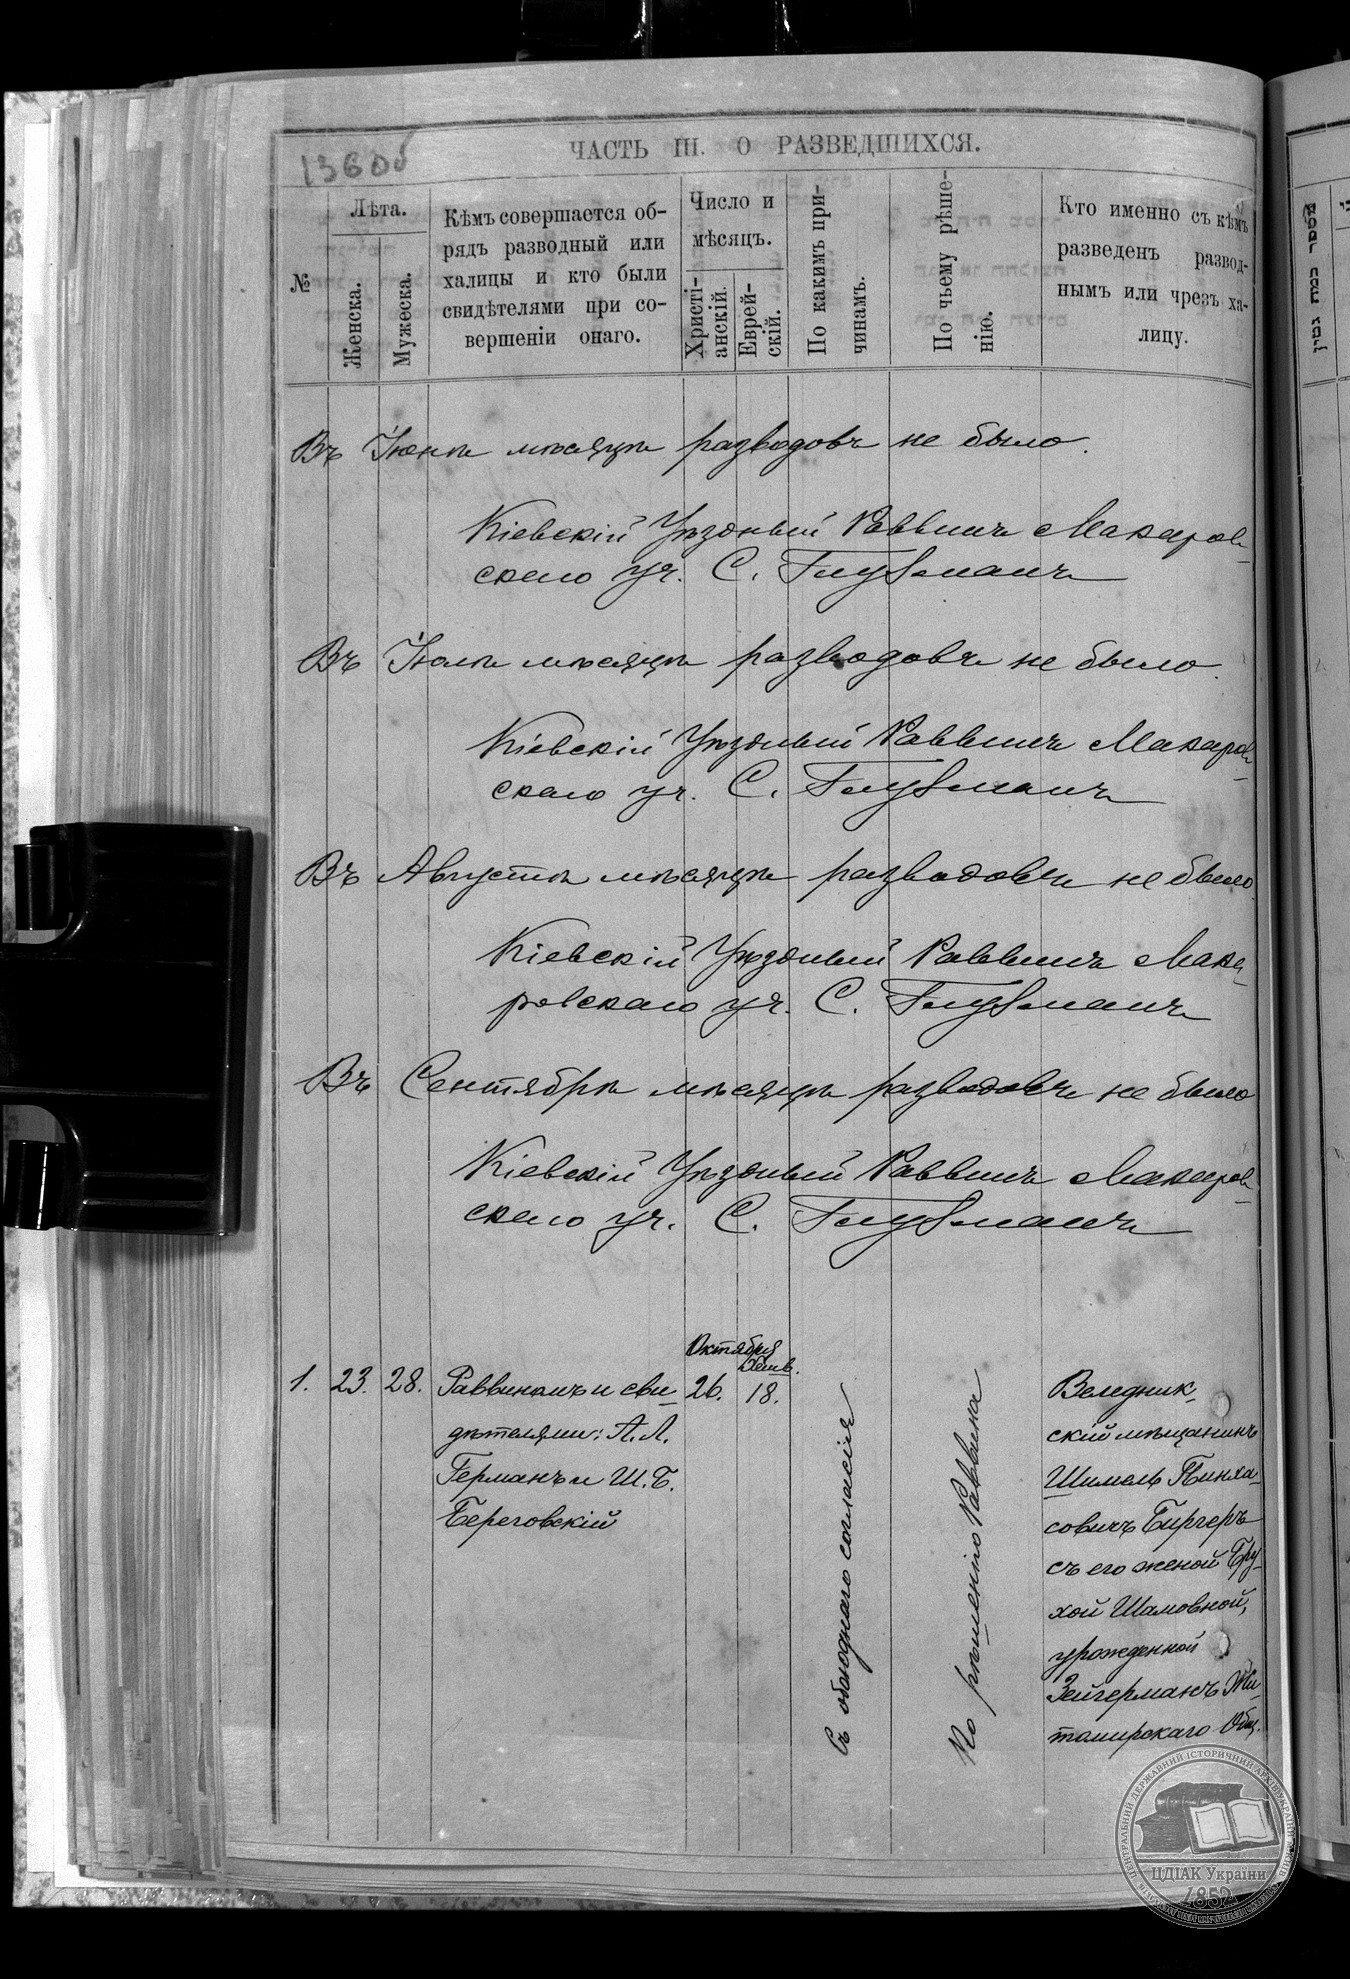 1360б
ЧАСТЬ III. О РАЗВЕДШИХСЯ.
№
Лѣта.
Женска.
Мужеска.
Кѣмъ совершается об-
рядъ разводный или
халицы и кто были
свидѣтелями при со-
вершеніи онаго.
Число и
мѣсяцъ.
Христі-
анскій.
Еврей-
скій.
По какимъ при-
чинамъ.
По чьему рѣше-
нію.
Кто именно съ кѣмъ
разведенъ развод-
нымъ или чрезъ ха-
лицу.
Въ Іюнѣ мѣсяцѣ разводовъ не было.
Кіевскій Уѣздный Раввинъ Макаров-
скаго уч. С. Глузманъ
Въ Іюлѣ мѣсяцѣ разводовъ не было.
Кіевскій Уѣздный Раввинъ Макаров-
скаго уч. С. Глузманъ
Въ Августѣ мѣсяцѣ разводовъ не было
Кіевскій Уѣздный Раввинъ Мака-
ровскаго уч. С. Глузманъ
Въ Сентябрѣ мѣсяцѣ разводовъ не было
Кіевскій Уѣздный Раввинъ Макаров-
скаго уч. С. Глузманъ
Октября
Хешв.
1. 23. 28. Раввиномъ и сви- 26. 18.
дѣтелями: А. Л.
Германъ и Ш. Б.
Береговскій
Съ обоюднаго согласія
По рѣшенію Раввина
Веледник-
скій мѣщанинъ
Шимель Пинха-
совичъ Биргеръ
съ его женой Бру-
хой Шамовной,
урожденной
Зейгерманъ Жи-
томирскаго Общ.
מספר המת גטין
ЦЕНТРАЛЬНИЙ ДЕРЖАВНИЙ ІСТОРИЧНИЙ АРХІВ УКРАЇНИ
ЦДІАК України
1852